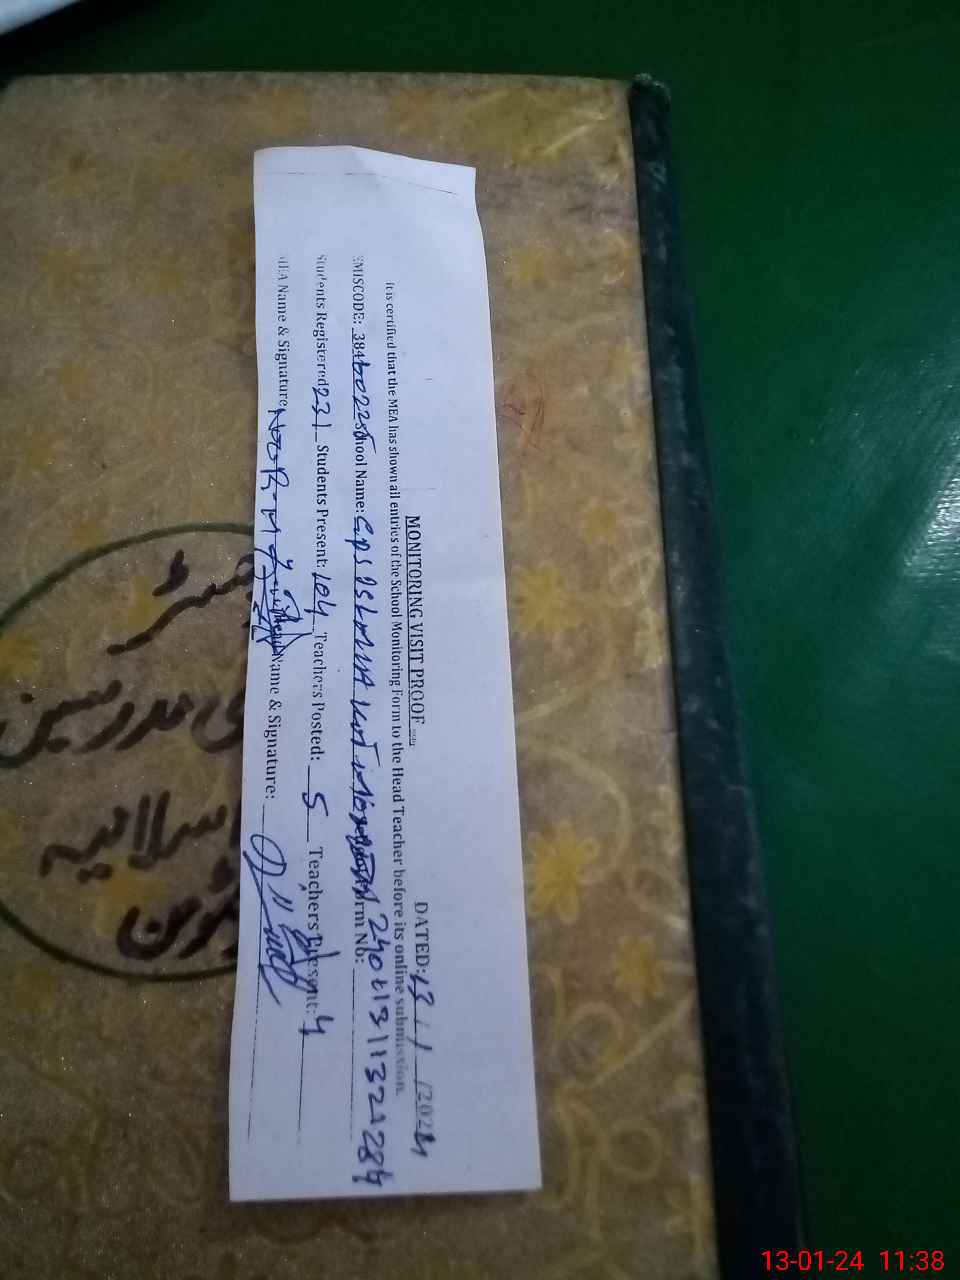 MONITORING VISIT PROOF
DATED: 13/1/2024
It is certified that the MEA has shown all entries of the School Monitoring Form to the Head Teacher before its online submission.
EMISCODE: 38460225 School Name: GPS ISLAMIA Form No: 2401131132284
Students Registered 231 Students Present: 104 Teachers Posted: 5 Teachers Present: 4
MEA Name & Signature Name & Signature:
رجسٹر
مدرسین
اسلامیہ
13-01-24 11:38